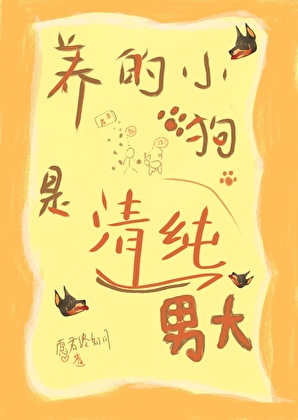 养的小
狗
是
清纯
男大
愿君终如月
著